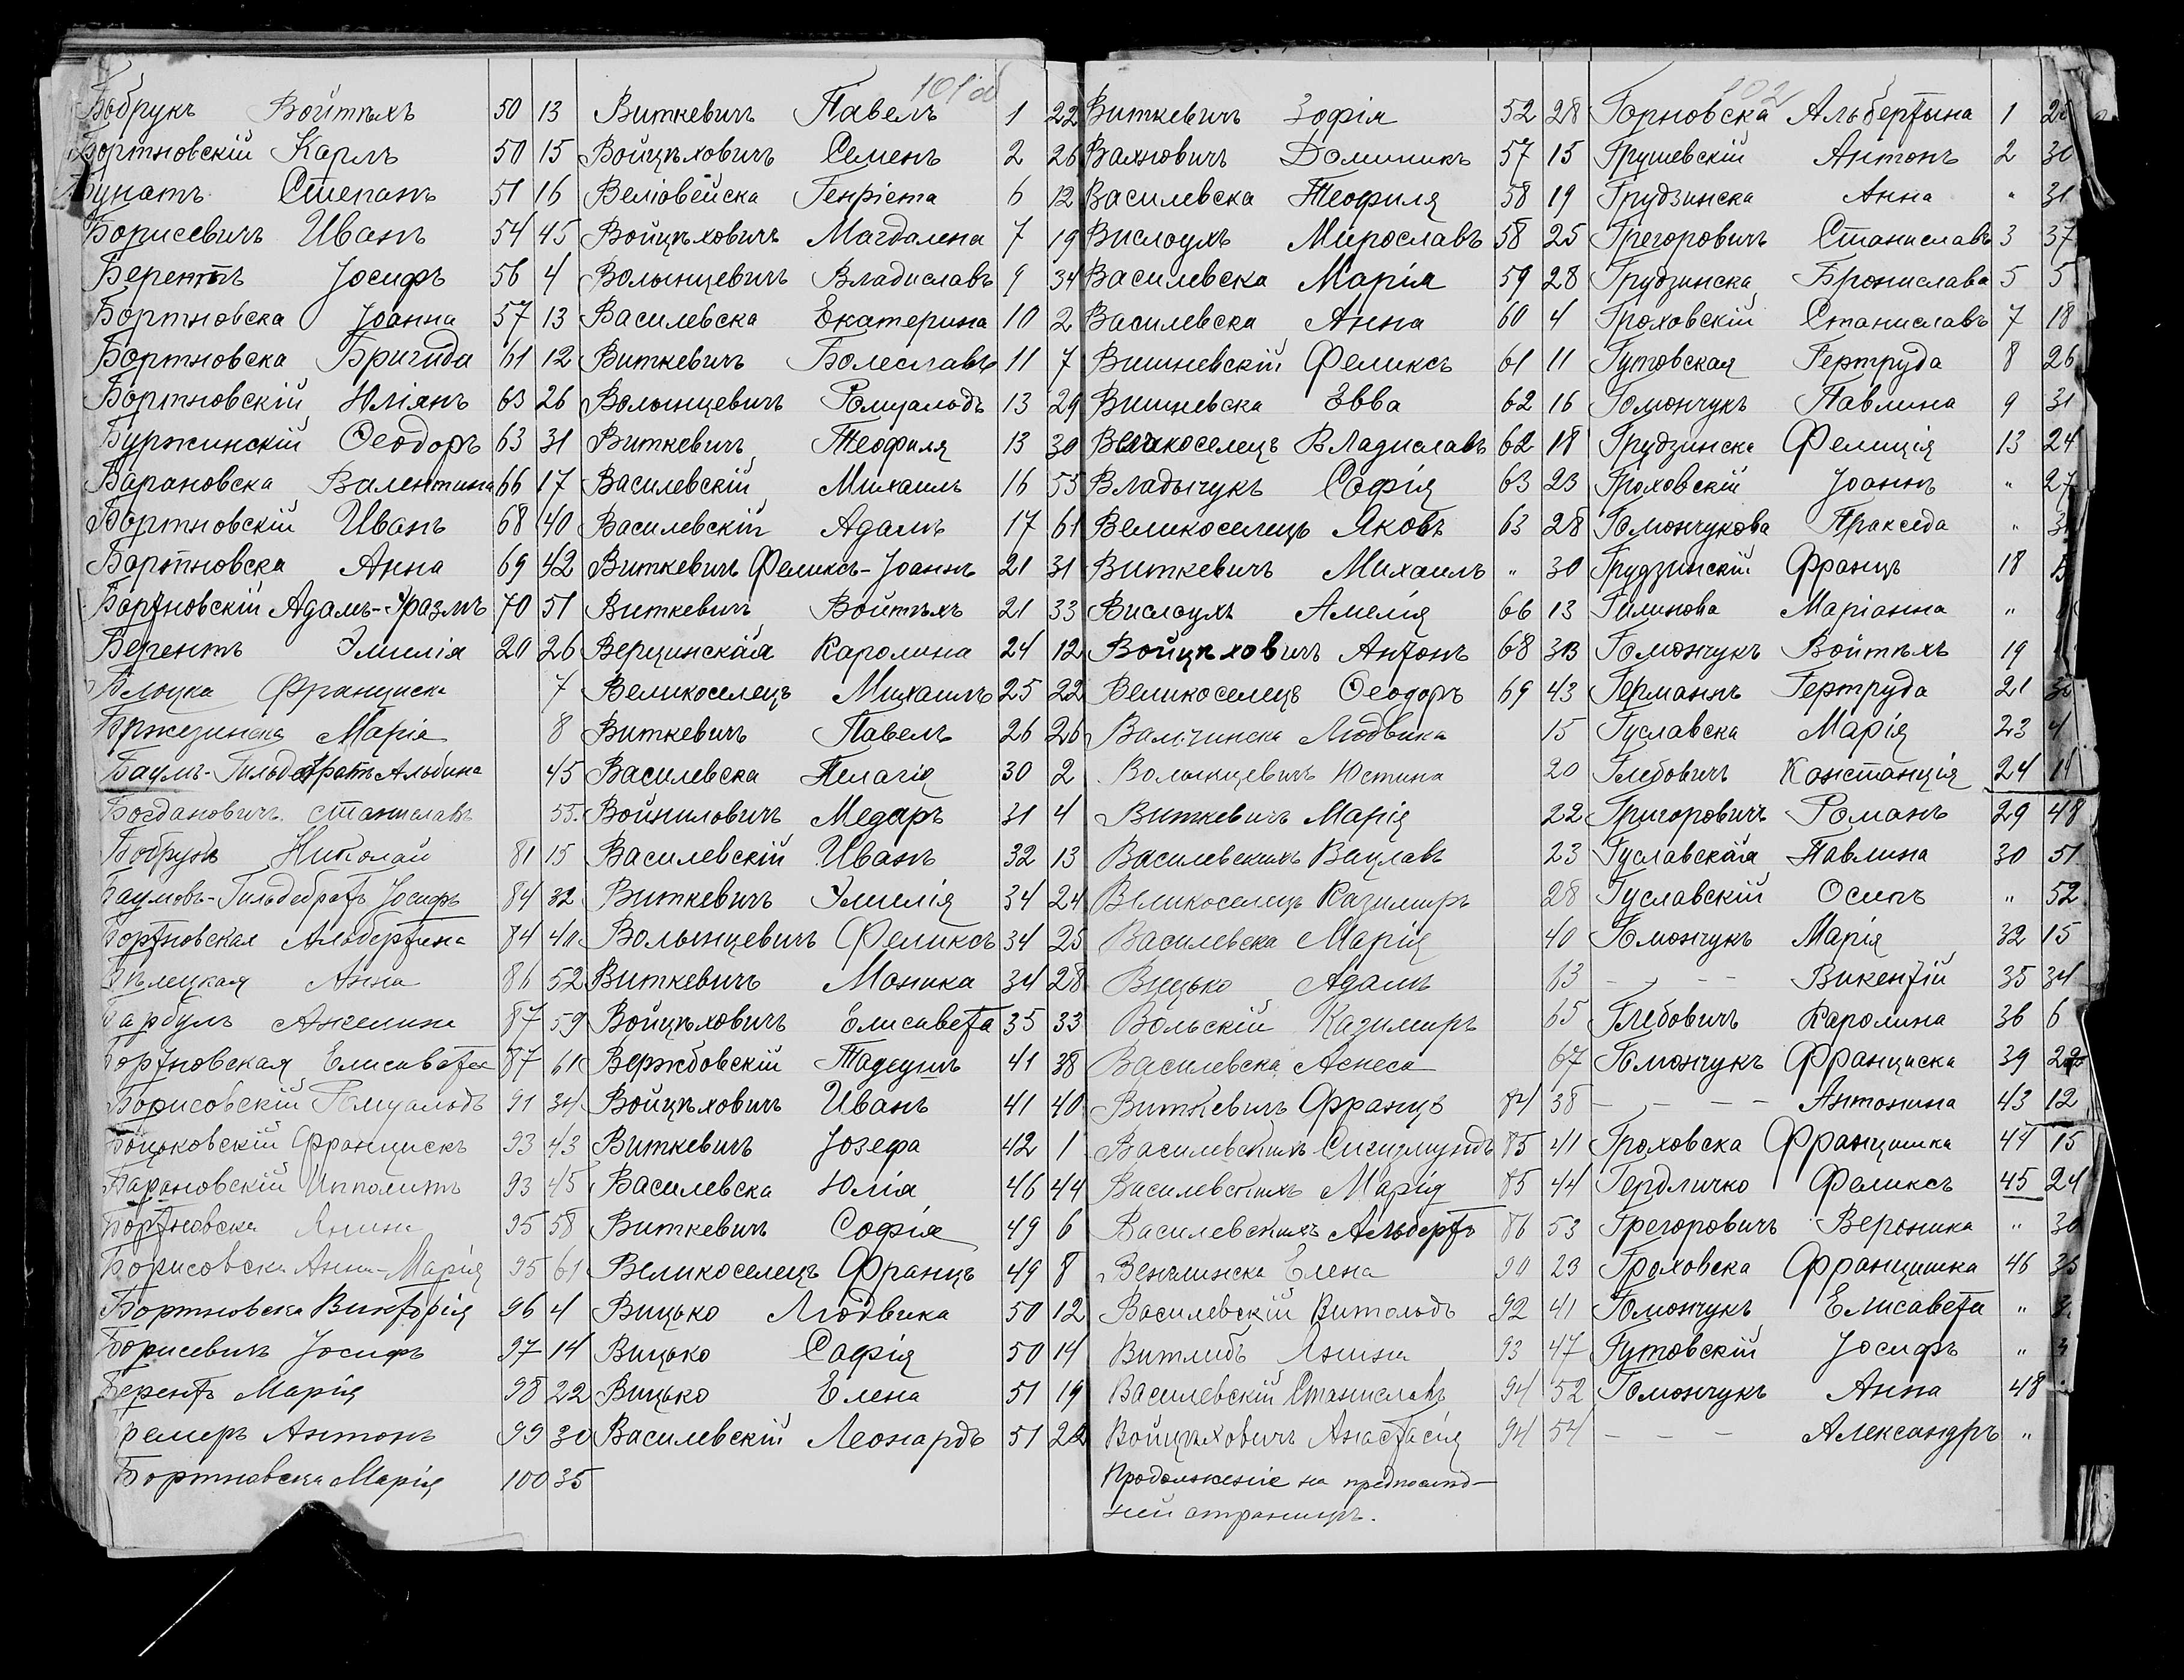 101 об
Бобрукъ Войтѣхъ 50 13
Бортновскій Карлъ 50 15
Степанъ 51 16
Борисевичъ Иванъ 54 45
Берентъ Іосифъ 56 4
Бортновска Іоанна 57 13
Бортновска Бригида 61 12
Бортновскій Юліянъ 63 26
Буржинскій Ѳеодоръ 63 31
Барановска Валентина 66 17
Бортновскій Иванъ 68 40
Бортновска Анна 69 42
Бортновскій Адамъ-Эразмъ 70 51
Берентъ Эмилія 20 26
Франциска 7
Бржезинска Марія 8
Баумъ-Гильдебратъ Альбина 45
Богдановичъ Станиславъ 55
Бобрукъ Николай 81 15
Баумовъ-Гильдебратъ Іосифъ 84 32
Бортновская Альбертина 84 40
Бѣлецкая Анна 86 52
Ангелина 87 59
Бортновская Елисавета 87 61
Борисовскій Ромуальдъ 91 34
Францискъ 93 43
Барановскій Ипполитъ 93 45
Бортновска Янина 95 58
Борисовска Анна-Марія 95 61
Бортновска Викторія 96 4
Борисевичъ Іосифъ 97 14
Берентъ Марія 98 22
Антонъ 99 30
Бортновска Марія 100 35
Виткевичъ Павелъ 1 22
Войцѣховичъ Семенъ 2 26
Веліовейска Генріета 6 12
Войцѣховичъ Магдалена 7 19
Волынцевичъ Владиславъ 9 34
Василевска Екатерина 10 2
Виткевичъ Болеславъ 11 7
Волынцевичъ Ромуальдъ 13 29
Виткевичъ Теофиля 13 30
Василевскій Михаилъ 16 55
Василевскій Адамъ 17 61
Виткевичъ Феликсъ-Іоаннъ 21 31
Виткевичъ Войтѣхъ 21 33
Верцинская Каролина 24 12
Великоселецъ Михаилъ 25 22
Виткевичъ Павелъ 26 26
Василевска Пелагія 30 2
Войниловичъ Медаръ 31 4
Василевскій Иванъ 32 13
Виткевичъ Эмилія 34 24
Волынцевичъ Феликсъ 34 25
Виткевичъ Моника 34 28
Войцѣховичъ Елисавета 35 33
Вержбовскій Тадеушъ 41 38
Войцѣховичъ Иванъ 41 40
Виткевичъ Іозефа 42 1
Василевска Юлія 46 44
Виткевичъ Софія 49 6
Великоселецъ Францъ 49 8
Вицько Людвика 50 12
Вицько Софія 50 14
Вицько Елена 51 19
Василевскій Леонардъ 51 22
Виткевичъ Зофія 52 28
Вахновичъ Доминикъ 57 15
Василевска Теофиля 58 19
Вислоухъ Мирославъ 58 25
Василевска Марія 59 28
Василевска Анна 60 4
Вишневскій Феликсъ 61 11
Вишневска Эвва 62 16
Великоселецъ Владиславъ 62 18
Владычукъ Софія 63 23
Великоселецъ Яковъ 63 28
Виткевичъ Михаилъ " 30
Вислоухъ Амелія 66 13
Войцѣховичъ Антонъ 68 33
Великоселецъ Ѳеодоръ 69 43
Людвика 15
Волынцевичъ Юстина 20
Виткевичъ Марія 22
Василевскихъ Вацлавъ 23
Великоселецъ Казимиръ 28
Василевска Марія 40
Вицько Адамъ 63
Вольскій Казимиръ 65
Василевска Агнеса 67
Виткевичъ Францъ 84 38
Василевскихъ Сигизмундъ 85 41
Василевскихъ Марія 85 44
Василевскихъ Альбертъ 86 53
Венглинска Елена 90 23
Василевскій Витольдъ 92 41
Витлибъ Янина 93 47
Василевскій Станиславъ 94 52
Войцѣховичъ Анастасія 94 54
Продолженіе на предпослѣд-
ней страницѣ.
102
Горновска Альбертына 1
Грушевскій Антонъ 2 30
Грудзинска Анна " 31
Грегоровичъ Станиславъ 3 37
Грудзинска Бронислава 5 5
Гроховскій Станиславъ 7 18
Гутовская Гертруда 8 26
Гомончукъ Павлина 9 31
Грудзинска Фелиція 13 24
Гроховскій Іоаннъ " 27
Гомончукова Пракседа "
Грудзинскій Францъ 18
Гилинова Маріанна "
Гомончукъ Войтѣхъ 19
Германъ Гертруда 21
Гуславска Марія 23 4
Глебовичъ Констанція 24 14
Григоровичъ Романъ 29 48
Гуславская Павлина 30 51
Гуславскій Осипъ " 52
Гомончукъ Марія 32 15
– – Викентій 35 34
Глебовичъ Каролина 36 6
Гомончукъ Франциска 39 22
– – – – Антонина 43 12
Гроховска Францишка 44 15
Гердличко Феликсъ 45 24
Грегоровичъ Вероника " 30
Гроховска Францишка 46
Гомончукъ Елисавета "
Гутовскій Іосифъ "
Гомончукъ Анна 48
– – – Александръ "